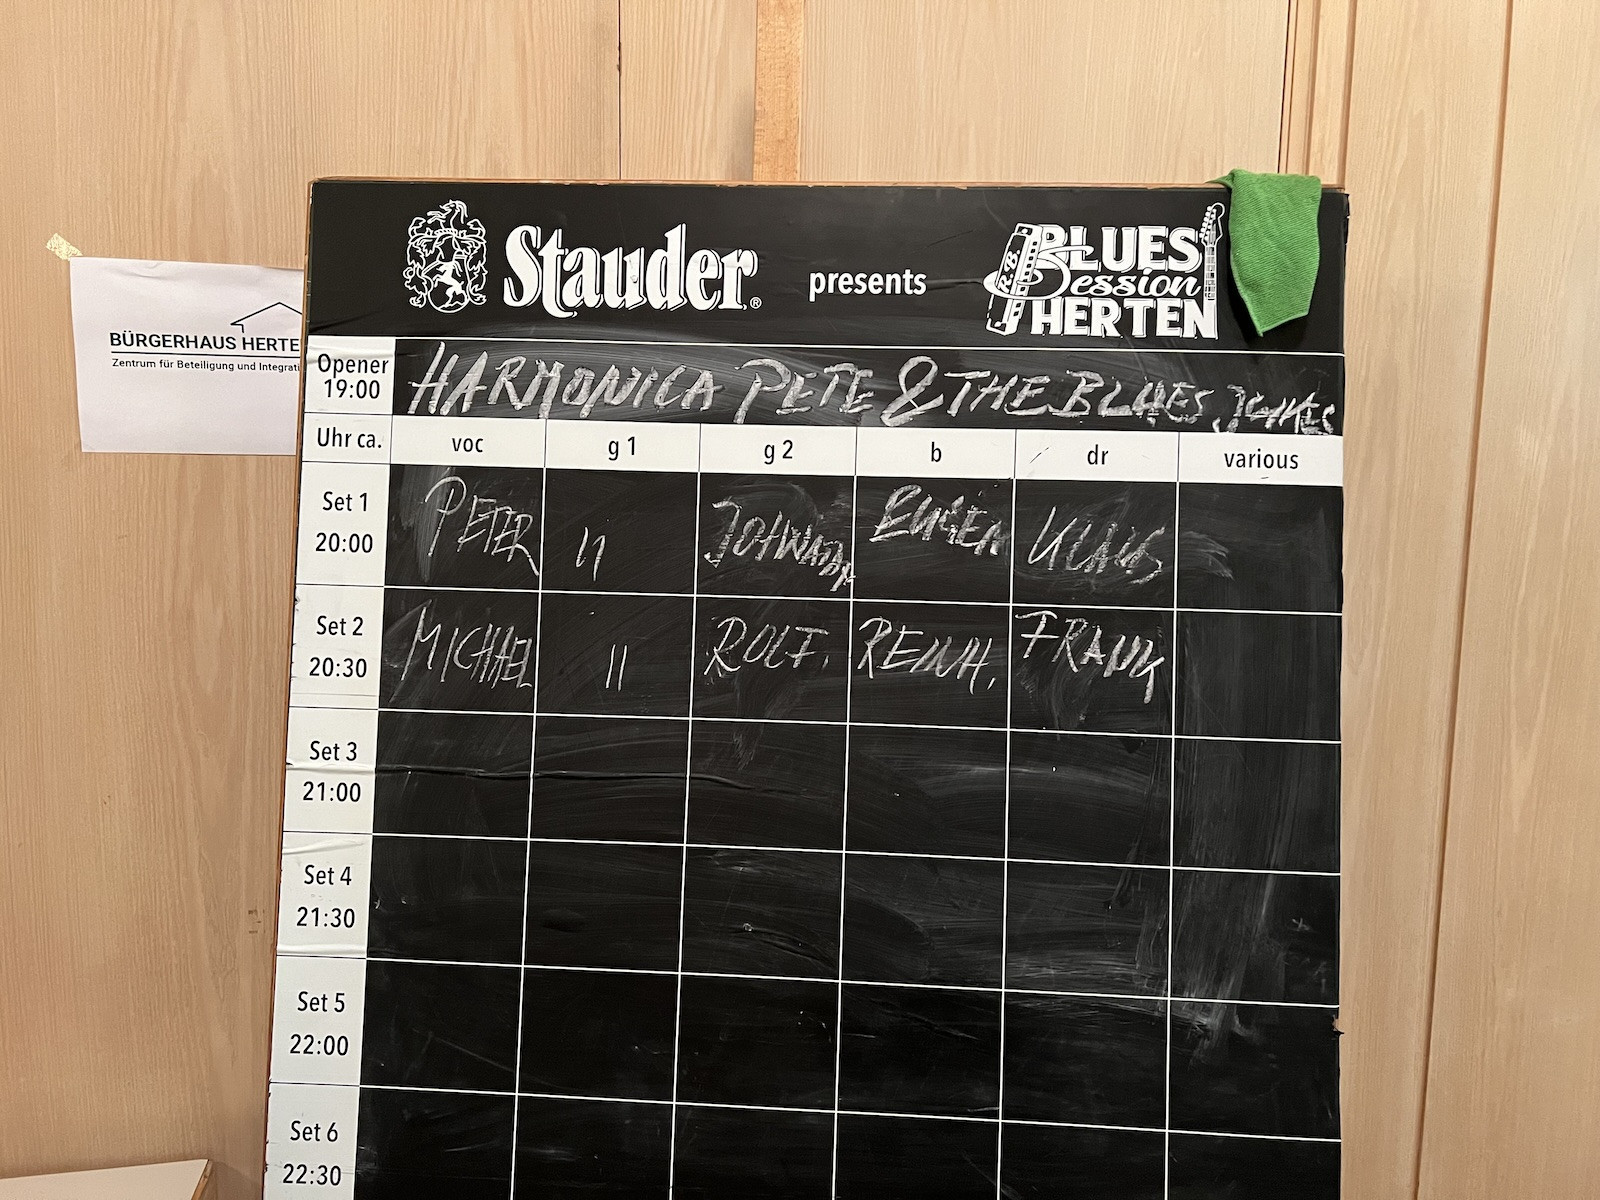 Stauder® presents R.B. BLUES Session HERTEN
BÜRGERHAUS HERTE
Zentrum für Beteiligung und Integrati
Opener 19:00 HARMONICA PETE & THE BLUES
Uhr ca. voc g 1 g 2 b dr various
Set 1 20:00 PETER 11 EUGEN KLAUS
Set 2 20:30 MICHAEL 11 ROLF. REINH. FRANK
Set 3
21:00
Set 4
21:30
Set 5
22:00
Set 6
22:30